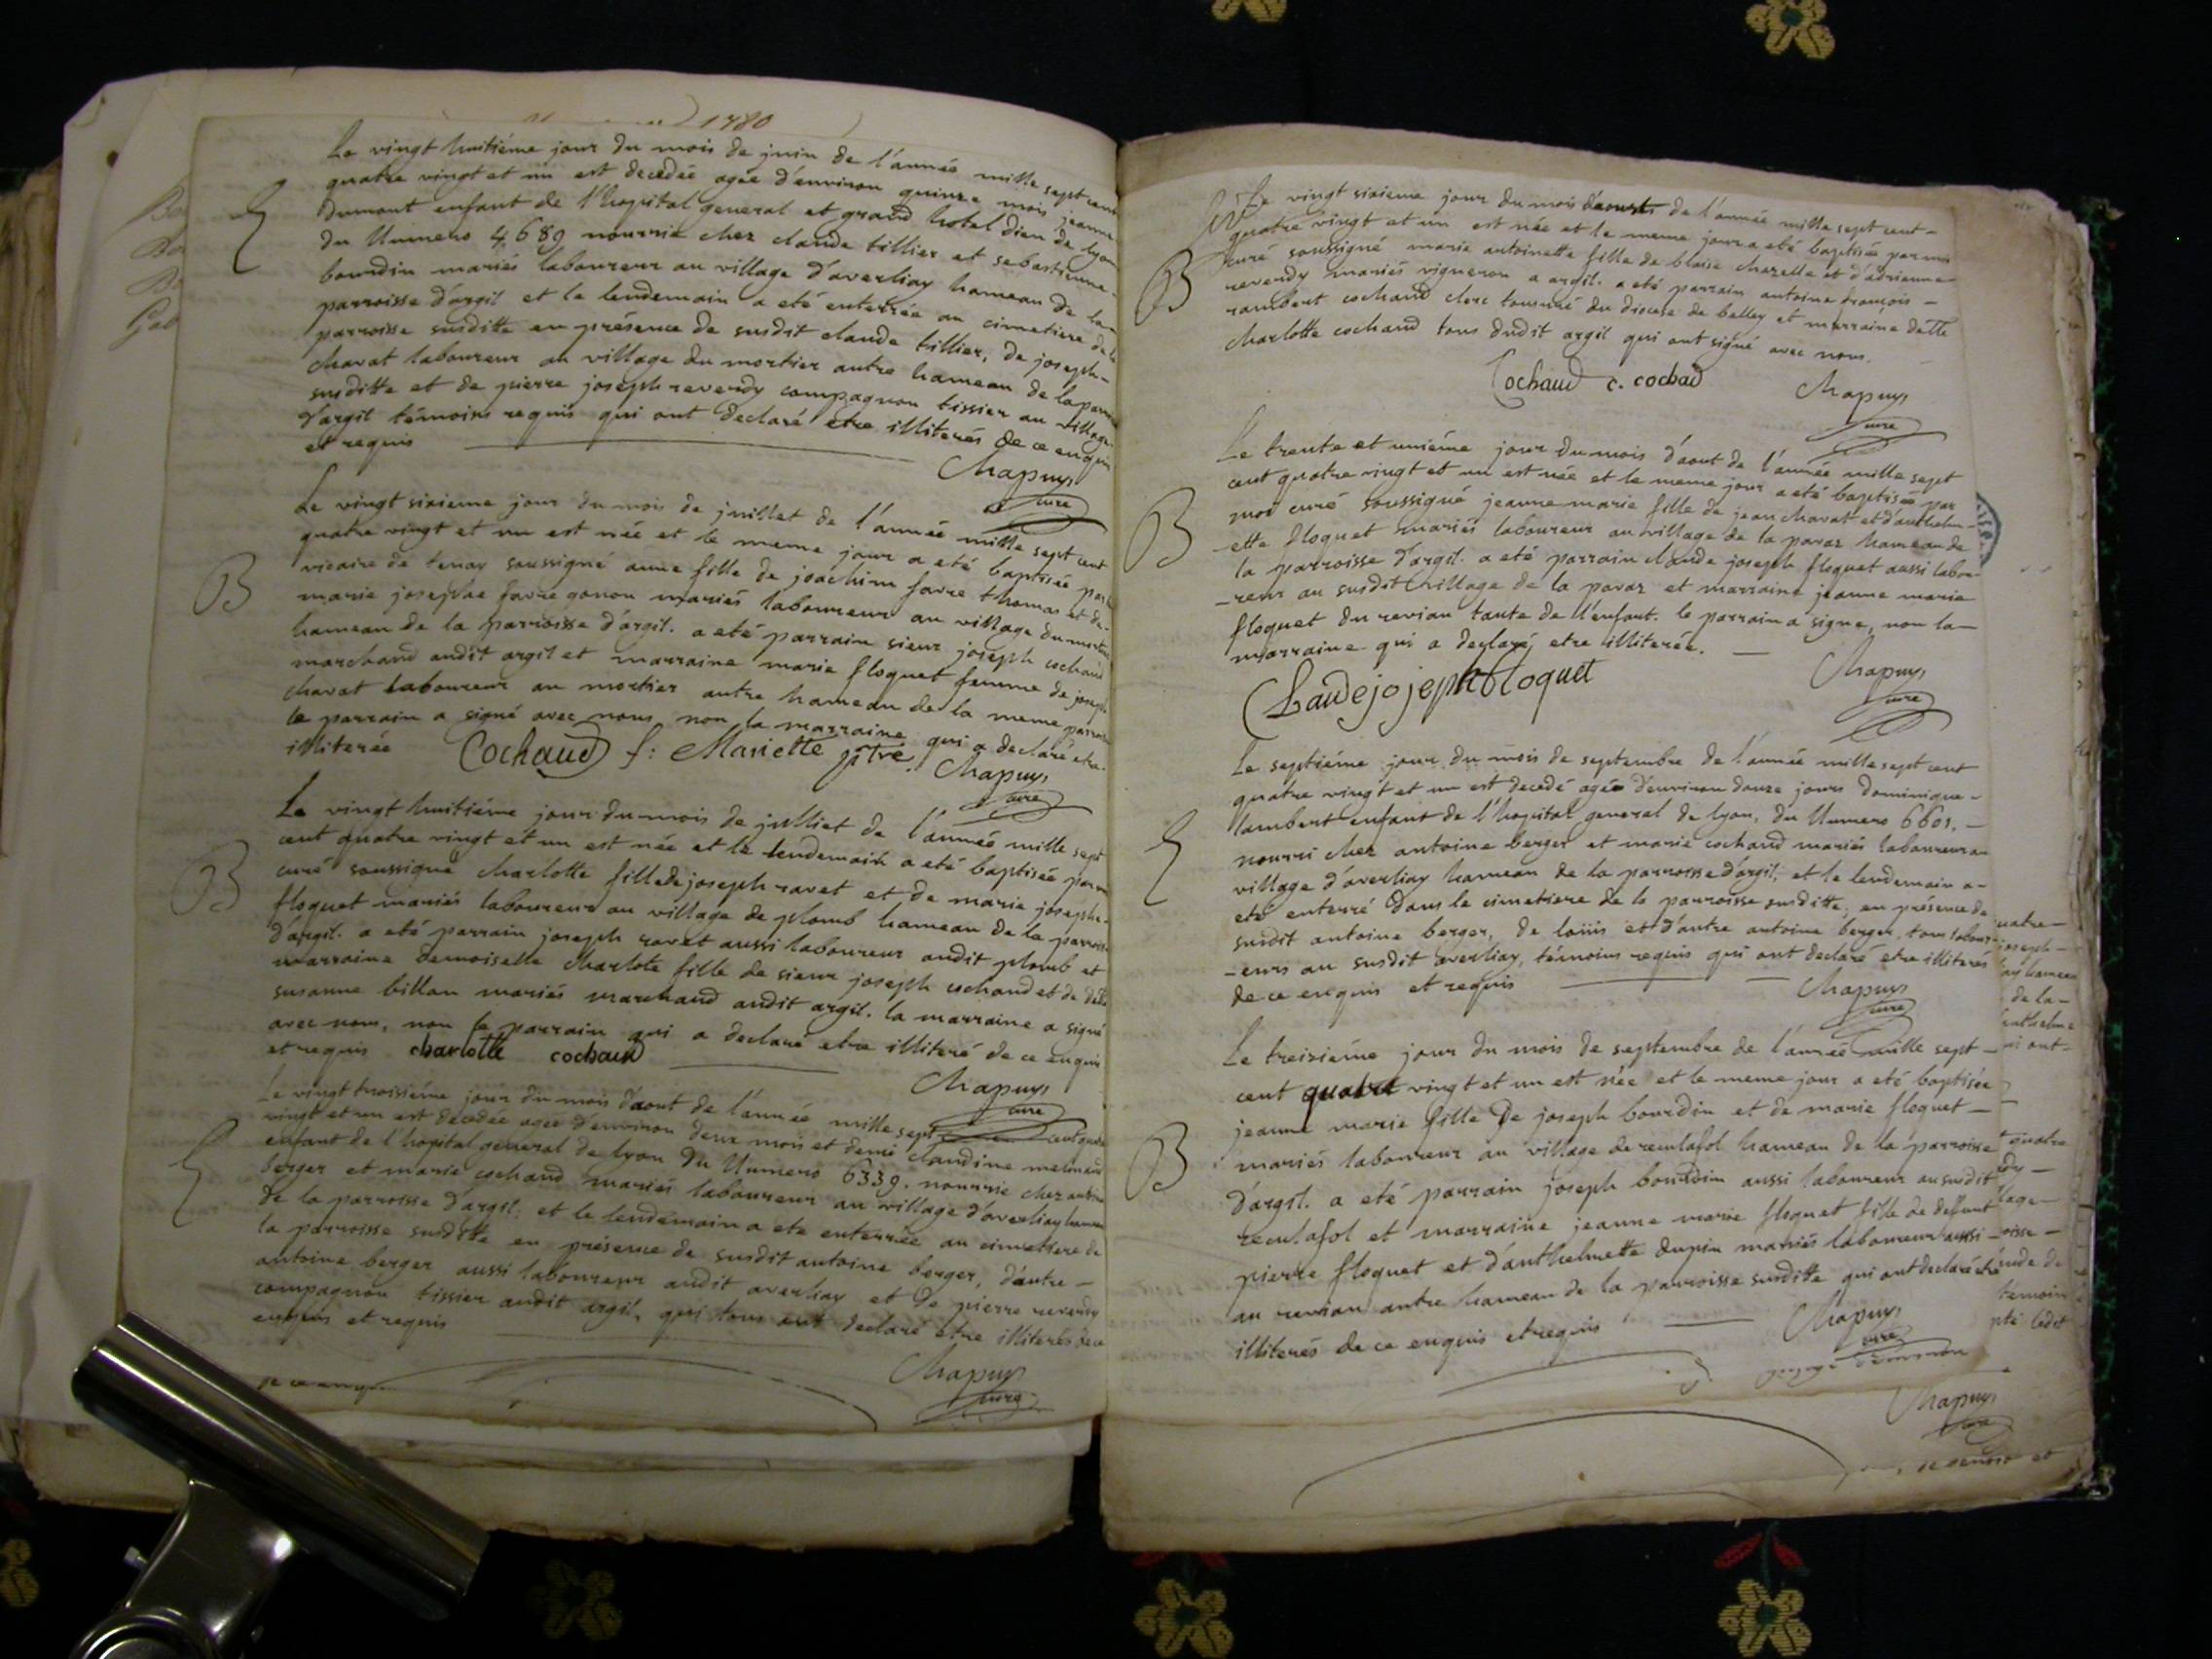 1780
Le vingt huitiéme jour du mois de juin de l'année mille sept cent
quatre vingt et un est decedée agée d'environ quinze mois jeanne
Dumont enfant de l'hopital general et grand hotel dieu de lyon
du Numero 4689 nourrie chez claude tillier et sebastienne
bourdin mariés laboureur au village d'averliay hameau de la
parroisse d'argil et le lendemain a eté enterrée au cimetiere de la
parroisse susditte en présence de susdit claude tillier, de joseph
chavat laboureur au village du mortier autre hameau de la parroi
susditte et de pierre joseph reverdy compagnon tissier au village
d'argil témoins requis qui ont declaré etre illiterés de ce enquis
et requis
Chapuys
curé
B
Le vingt sixieme jour du mois de juillet de l'année mille sept cent
quatre vingt et un est née et le meme jour a eté baptisée par
vicaire de tenay soussigné anne fille de joachim favre thomas et de
marie josephe favre gonon mariés laboureur au village du mortier
hameau de la parroisse d'argil. a eté parrain sieur joseph cochaud
marchand audit argil et marraine marie floquet femme de joseph
chavat laboureur au mortier autre hameau de la meme parroi
le parrain a signé avec nous non la marraine qui a declaré etre
illiterée Cochaud f: Mariette ptre
Chapuys
curé
B
Le vingt huitiéme jour du mois de julliet de l'année mille sept
cent quatre vingt et un est née et le lendemain a eté baptisée par
curé soussigné charlotte fille de joseph ravet et de marie josephe
floquet mariés laboureur au village de plomb hameau de la parroi
d'argil. a eté parrain joseph ravet aussi laboureur audit plomb et
marraine demoiselle charlote fille de sieur joseph cochaud et de
susanne billon mariés marchand audit argil. la marraine a signé
avec nous, non le parrain qui a declaré etre illiteré de ce enquis
et requis charlotte cochaud
Chapuys
curé
Le vingt troisiéme jour du mois d'aout de l'année mille sept cent quatre
vingt et un est decedée agée d'environ deux mois et demi claudine
enfant de l'hopital general de lyon du Numero 6339. nourrie chez antoine
berger et marie cochaud mariés laboureur au village d'averliay hameau
de la parroisse d'argil; et le lendemain a ete enterrée au cimetiere de
la parroisse susditte en présence de susdit antoine berger, d'autre
antoine berger aussi laboureur audit averliay et de pierre reverdy
compagnon tissier audit argil, qui tous ont declaré etre illiterés de ce
enquis et requis
Chapuys
curé
Le vingt sixieme jour du mois d'aoust de l'année mille sept cent
quatre vingt et un est née et le meme jour a eté baptisée par moi
curé soussigné marie antoinette fille de blaise chazelle et d'adrienne
reverdy mariés vigneron a argil. a eté parrain antoine françois
rambert cochaud clerc tonsuré du diocese de belley et marraine delle
charlotte cochaud tous dudit argil qui ont signé avec nous.
B
Cochaud c. cochad
Chapuys
curé
Le trente et uniéme jour du mois d'aout de l'année mille sept
cent quatre vingt et un est née et le meme jour a eté baptisée par
moi curé soussigné jeanne marie fille de jean chavat et d'anthelm
-ette floquet mariés laboureur au village de la pavaz hameau de
la parroisse d'argil. a eté parrain claude joseph floquet aussi labou
-reur au susdit village de la pavaz et marraine jeanne marie
floquet du revian tante de l'enfant. le parrain a signe, non la
marraine qui a declaré etre illiterée.
B
Claude jojeph floquet
Chapuys
curé
Le septiéme jour du mois de septembre de l'année mille sept cent
quatre vingt et un est decedé agée d'environ douze jours dominique
lambert enfant de l'hopital general de lyon, du Numero 6601.
nourri chez antoine berger et marie cochaud mariés laboureur au
village d'averliay hameau de la parroisse d'argil; et le lendemain a
eté enterré dans le cimetiere de la parroisse susditte, en présence de
susdit antoine berger, de loüis et d'autre antoine berger, tous labour
-eurs au susdit averliay, témoins requis qui ont declaré etre illiterés
de ce enquis et requis
Chapuys
curé
Le treizieme jour du mois de septembre de l'année mille sept
cent quatre vingt et un est née et le meme jour a eté baptisée
jeanne marie fille De joseph bourdin et de marie floquet
mariés laboureur au village de reculafol hameau de la parroisse
d'argil. a eté parrain joseph bourdin aussi laboureur au susdit
reculafol et marraine jeanne marie floquet fille de deffunt
pierre floquet et d'anthelmette dupin mariés laboureur aussi
au revian autre hameau de la parroisse susditte qui ont declaré etre
illiterés de ce enquis et requis
B
Chapuys
curé
Chapuys
curé